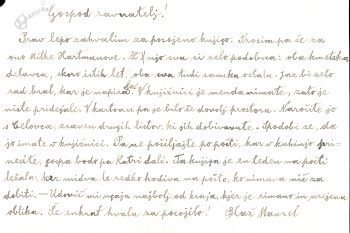 Gospod ravnatelj!
Prav lepo zahvalim za posojeno knjigo. Prosim pa če za
ono Milke Hartmanove. Z njo sva si zelo podobna: oba kmetska
delavca, skoro istih let, oba sva tudi samska ostala. Jaz bi zelo
rad bral, kar je napisala. V knjižnici je menda nimate, zato je
niste pridejali. V kartonu pa se bilo že dovolj prostora. Naročite jo
s Celovca, zraven drugih listov, ki jih dobivavate. Spodobi se, da
jo imate v knjižnici. Pa ne pošiljajte po pošti, kar v kuhinjo pri-
nesite, gorha bodo pa Katri dali. Ta knjiga je en teden na pošti
ležala, ker midva le redko hodiva na pošto, ko nimava nič za
dobiti. - Udovič mi ugaja najbolj od kraja, kjer je rimano in urejena
oblika. Še enkrat hvala za posojilo! Blaž Mavrel